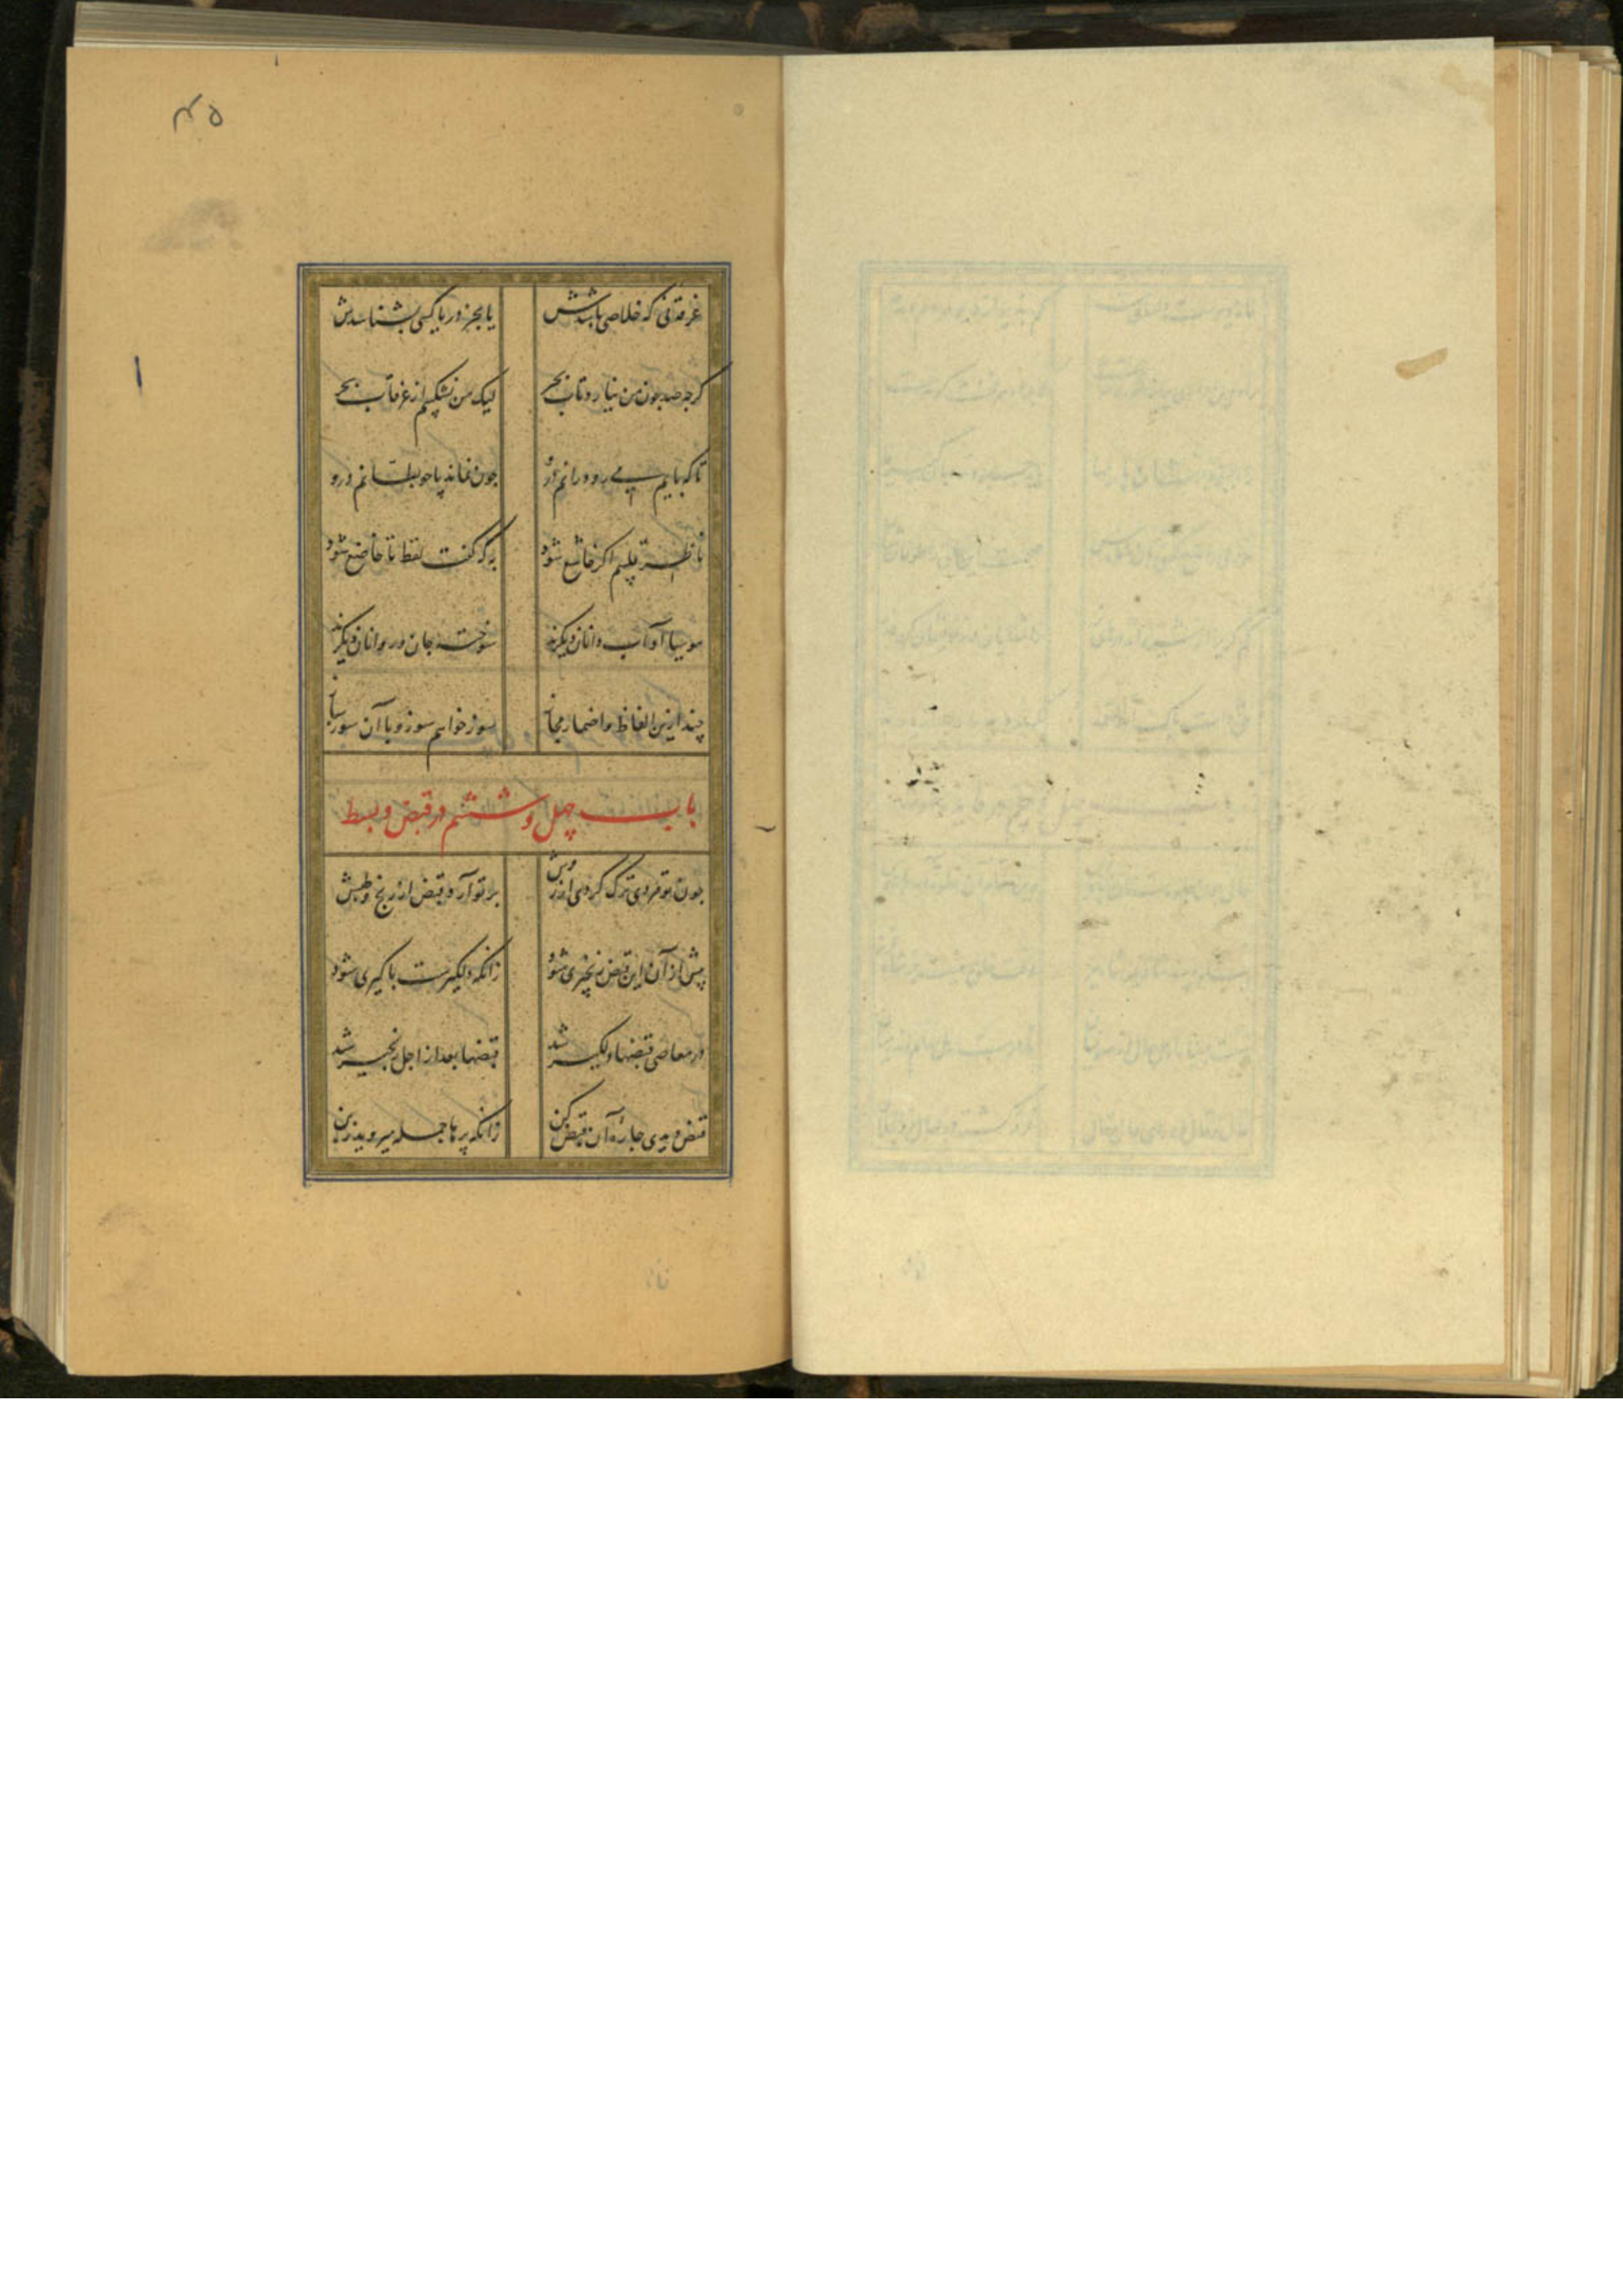 ۴۵
غرقه‌ئی که خلاصی باشدش یا بجز دریا کسی بشناسدش
کرچه صد چون من نیارد تاب بحر لیک من نشکیبم از غرقاب بحر
تا که پایم میرود رانم درو چون نماند پا چو بطانم درو
ناظر قلبیم اکر خاشع شود کرکه کفت لفظ ناخاضع شود
موسیا آداب دانان دیکرند سوخته جان و روانان دیکرند
چند ازین الفاظ و اضمار و مجاز سوز خواهم سوز و با آن سوز ساز
باب چهل و ششم در قبض و بسط
چون تو وردی ترک کردی در روش بر تو آرد قبض از رنج و طپش
پیش از آن این قبض زنجیری شود زانکه دلکیرست پا کیری شود
در معاصی قبضها دلکیر شد قبضها بعد از اجل زنجیر شد
قبض دیدی چارۀ آن قبض کن زانکه پرها جمله میروید زبن